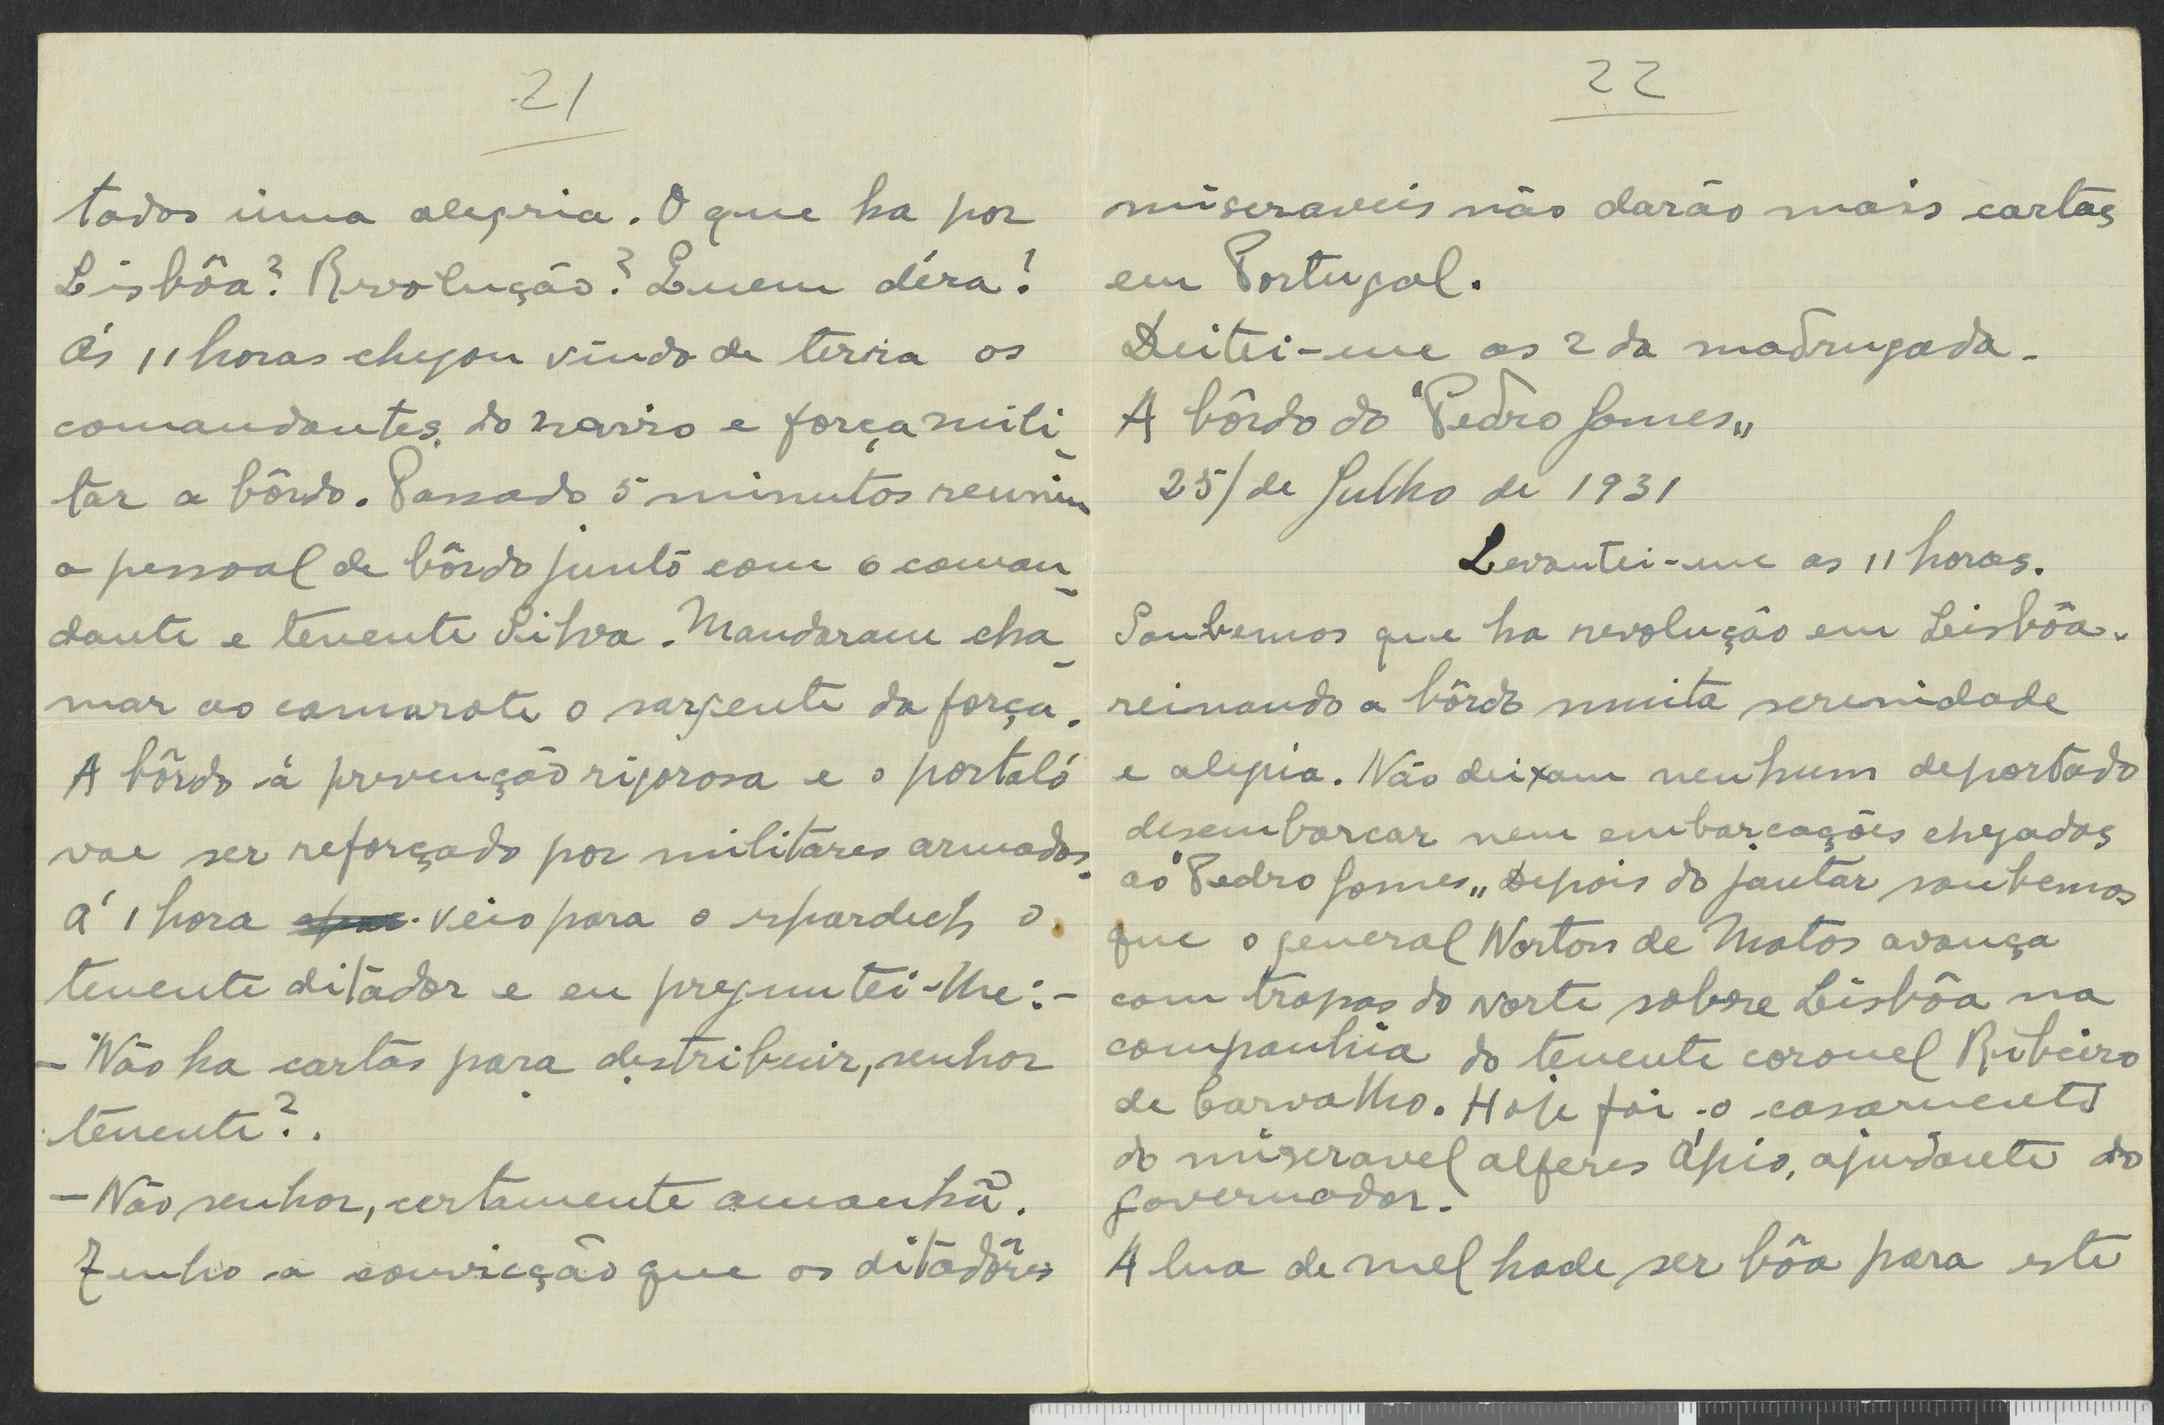 21
tados uma alegria. O que ha por
Lisbôa? Revolução? Quem déra!
Ás 11 horas chegou vindo de terra os
comandantes do navio e força mili
tar a bôrdo. Passado 5 minutos reuniu
o pessoal de bôrdo junto com o coman
dante e tenente Silva. Mandaram cha
mar ao camarote o sargente da força.
A bôrdo á prevenção rigorosa e o portaló
vae ser reforçado por militares armados.
Á 1 hora veio para o spardech o
tenente ditador e eu preguntei-lhe:-
- Não ha cartas para destribuir, senhor
tenente?.
- Não senhor, certamente amanhã.
Tenho a convicção que os ditadôres
22
miseraveis não darão mais cartas
em Portugal.
Deitei-me as 2 da madrugada.
A bôrdo do "Pedro Gomes„
25/ de Julho de 1931
Levantei-me as 11 horas.
Soubemos que ha revolução em Lisbôa.
reinando a bôrdo muita serenidade
e alegria. Não deixam nenhum deportado
desembarcar nem embarcações chegadas
ao "Pedro Gomes„ Depois do jantar soubemos
que o general Norton de Matos avança
com tropas do norte sobre Lisbôa na
companhia do tenente coronel Ribeiro
de Carvalho. Hoje foi o casamento
do miseravel alferes Ápio, ajudante do
governador.
A lua de mel hade ser bôa para este